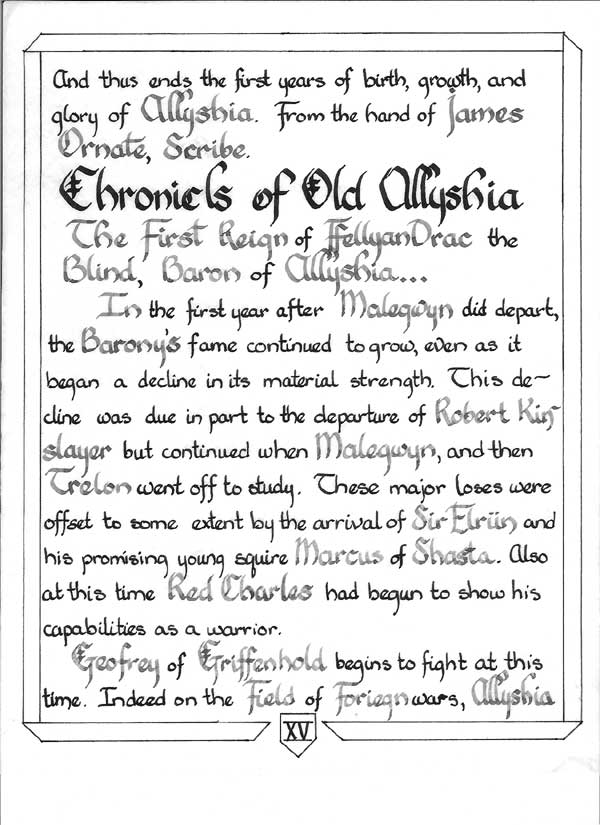 And thus ends the first years of birth, growth, and
glory of Allyshia. From the hand of James
Ornate, Scribe.
Chronicls of Old Allyshia
The First Reign of ffellyanDrac the
Blind, Baron of Allyshia...
In the first year after Malegwyn did depart,
the Barony's fame continued to grow, even as it
began a decline in its material strength. This de~
cline was due in part to the departure of Robert Kin~
slayer but continued when Malegwyn, and then
Trelon went off to study. These major loses were
offset to some extent by the arrival of Sir Elrün and
his promising young squire Marcus of Shasta. Also
at this time Red Charles had begun to show his
capabilities as a warrior.
Geofrey of Griffenhold begins to fight at this
time. Indeed on the Field of Foriegn wars, Allyshia
XV